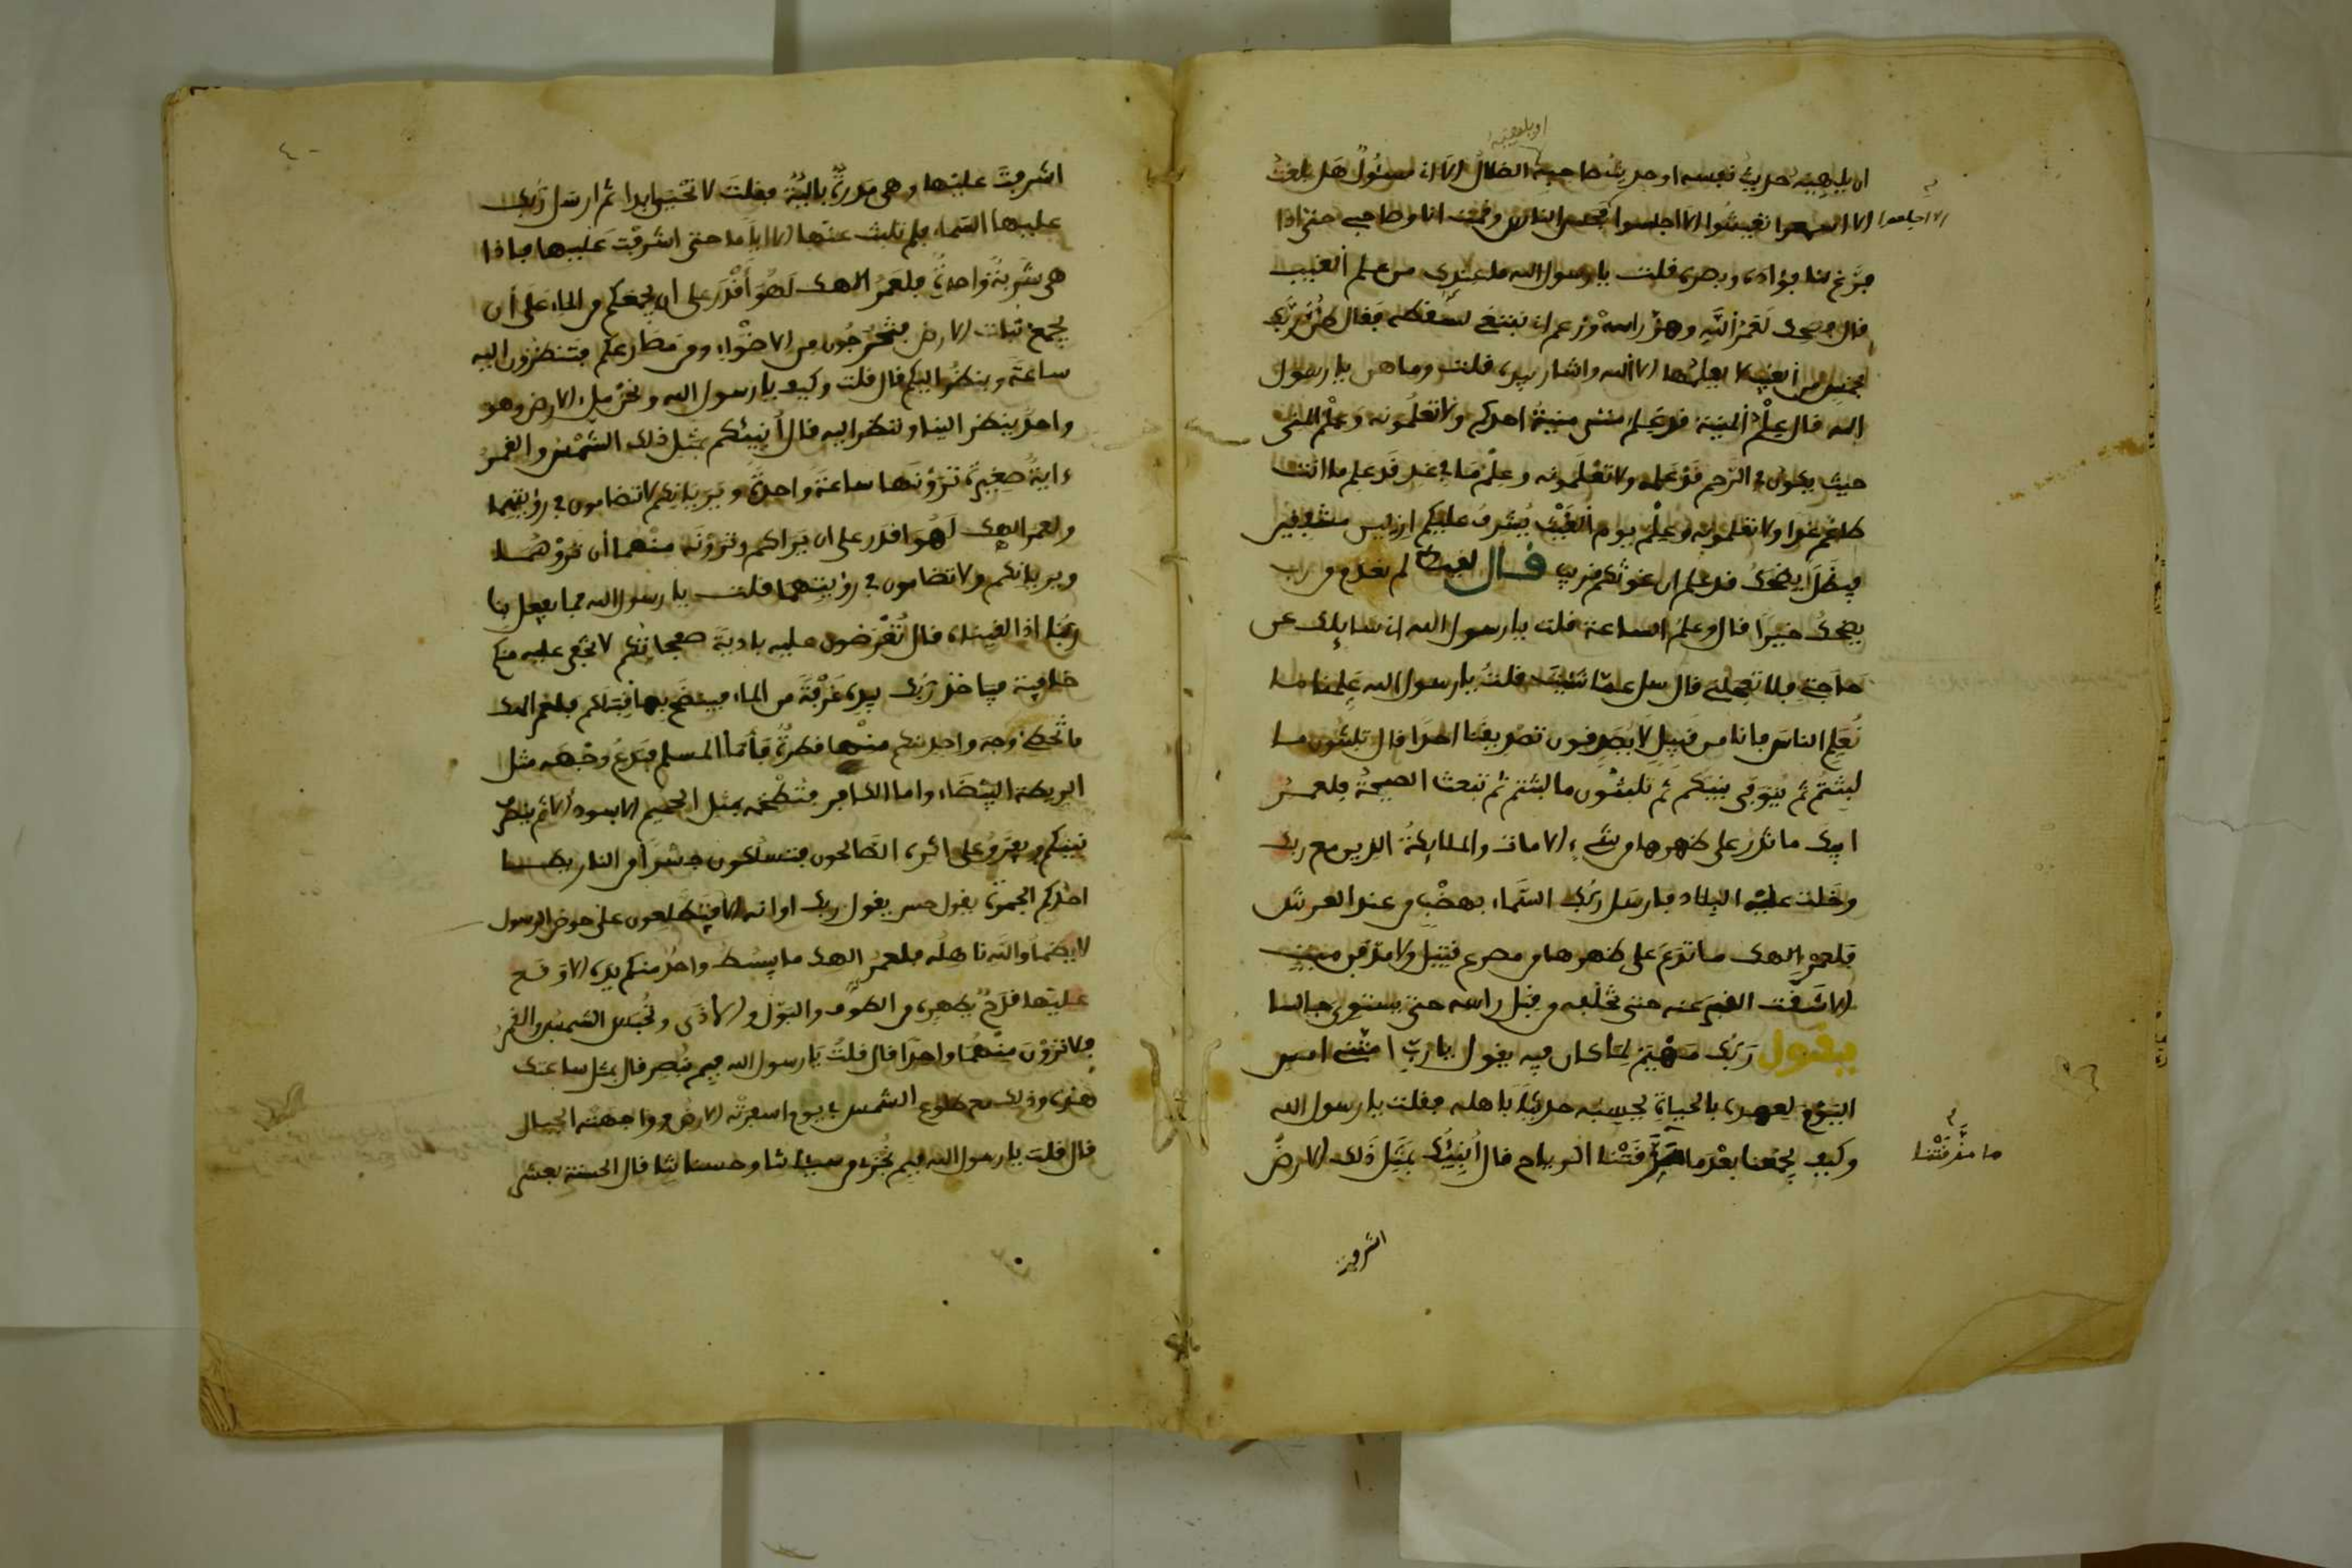 او يلهيه
ان يلهيه حديث نفسه او حديث صاحبه الضلال الا اني مسئول هل بلغت
الا اسمعوا تعيشوا الا اجلسوا فجلس الناس وقمت انا وصاحبي حتى اذا
الا اجلسوا
فرغ لنا فؤاده وبصره قلت يا رسول الله ما عندك من علم الغيب
فال فضحك لعمر الله وهز راسه وزعم اني ابتغي لسقطه فقال ضن ربك
بخمس من الغيب لا يعلمها الا الله واشار بيده فلت وما هن يا رسول
الله فال علم المنية فد علم متى منية احدكم ولا تعلمونه وعلم المني
حيث يكون في الرحم قد علمه ولا تعلمونه وعلم ما في غد قد علم ما انت
طاعم غدا ولا تعلمونه وعلم يوم الغيث يشرف عليكم ازلين مشفقين
فيظل يضحك فد علم ان غوثكم قريب فال لقيط لم نعدم من رب
يضحك خيرا فال وعلم الساعة فلت يا رسول الله اني سايلك عن
حاجتي فلا تعجلني فال سل عما شئت فلت يا رسول الله علمنا مما
تعلم الناس فانا من قبيل لا يصدقون تصديقنا احدا فال تلبثون ما
لبثتم ثم يتوفى نبيكم ثم تلبثون ما لبثتم ثم تبعث الصيحة فلعمر
الهك ما تدع على ظهرها من شيء الا مات والملايكة الذين مع ربك
وخلت عليه البلاد فارسل ربك السماء بهضب من عند العرش
فلعمر الهك ما تدع على ظهرها من مصرع قتيل ولا مدفن ميت
الا شقت القبر عنه حتى تخلفه من قبل راسه حتى يستوي جالسا
يفول ربك مهيم لما كان فيه يفول يا رب امتني امس
اليوم لعهده بالحياة يحسبه حديثا باهله ففلت يا رسول الله
وكيف يجمعنا بعد ما تفرقنا الرياح فال انبيك بمثل ذلك الارض
ما مزقتنا
اشرفت
اشرفت عليها وهي مدرة بالية ففلت لا تحيى ابدا ثم ارسل ربك
عليها السماء فلم تلبث عنها الا اياما حتى اشرفت عليها فاذا
هي شربة واحدة فلعمر الهك لهو أقدر على ان يجمعكم من الماء على أن
يجمع نبات الارض فتخرجون من الاضواء ومن مصارعكم فتنظرون اليه
ساعة وينظر اليكم فال فلت وكيف يا رسول الله ونحن ملء الارض وهو
واحد ينظر الينا وننظر اليه فال أنبيئكم بمثل ذلك الشمس والقمر
ءاية صغيرة ترونها ساعة واحدة ويريانكم لا تضامون في رؤيتهما
ولعمر الهك لهو اقدر على ان يراكم وترونه منهما أن تروهما
ويريانكم ولا تضامون في رؤيتهما فلت يا رسول الله فما يفعل بنا
ربنا اذا لقيناه فال تعرضون عليه بادية صفحاتكم لا تخفى عليه منكم
خافية فياخذ ربك بيده غرفة من الماء فينضح بها قبلكم فلعمر الهك
ما تخطئ وجه واحد منكم منها قطرة فأما المسلم فتدع وجهه مثل
الريطة البيضاء واما الكافر فتخطمه بمثل الحميم الاسود الا ثم ينصرف
نبيكم ويفترق على اثره الصالحون فتسلكون جسرا من النار يطا
احدكم الجمرة يفول حس يفول ربك اوانه الا فتطلعون على حوض الرسول
لا يظمأ والله ناهله فلعمر الهك ما يبسط واحد منكم يده الا وقع
عليها قدح يطهره من الطوف والبول والاذى وتحبس الشمس والقمر
فلا ترون منهما واحدا فال فلت يا رسول الله فبم نبصر فال بمثل ساعتك
هذه وذلك مع طلوع الشمس في يوم اسفرته الارض وواجهته الجبال
فال فلت يا رسول الله فبم نجزى من سيئاتنا وحسناتنا فال الحسنة بعشر